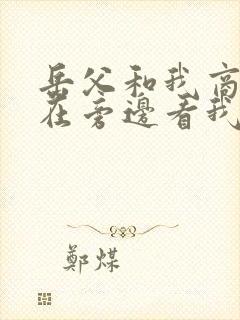 岳父和我高
在旁邊看我
鄭煤